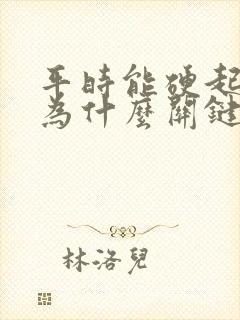 平時能硬起
為什麼關鍵
林洛兒